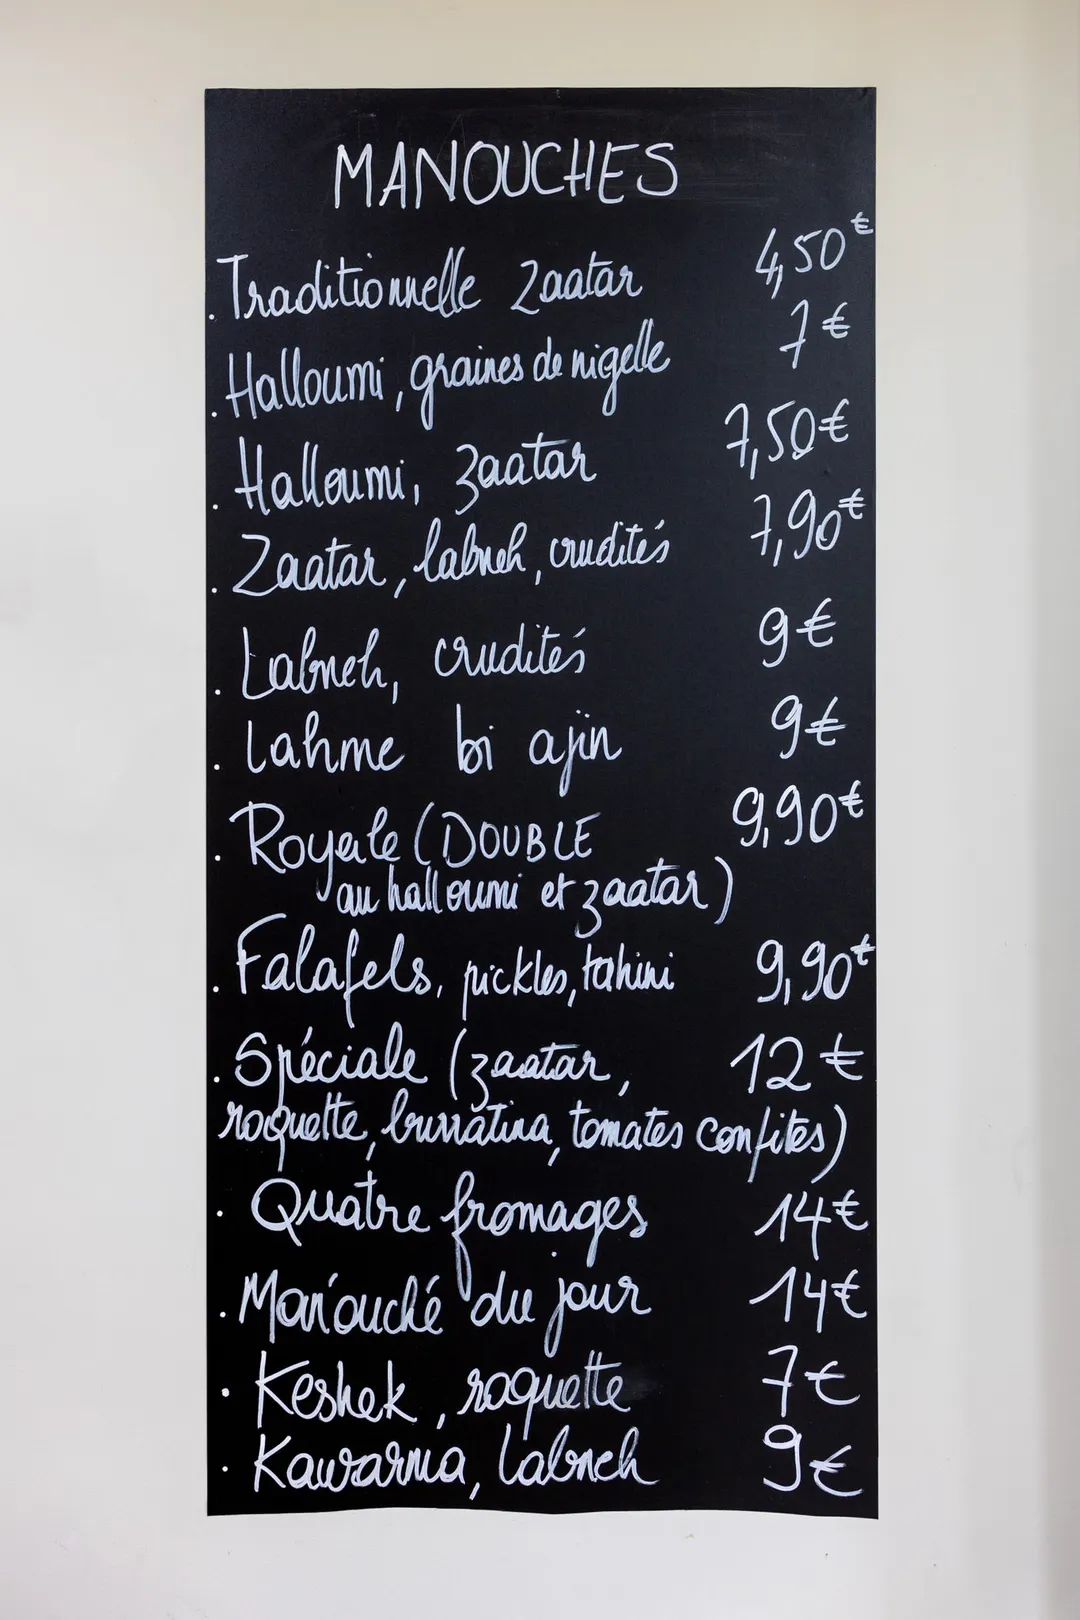 MANOUCHES
. Traditionnelle Zaatar 4,50€
. Halloumi, graines de nigelle 7€
. Halloumi, zaatar 7,50€
. Zaatar, labneh, crudités 7,90€
. Labneh, crudités 9€
. Lahme bi ajin 9€
. Royale (DOUBLE 9,90€
au halloumi et zaatar)
. Falafels, pickles, tahini 9,90€
. Spéciale (zaatar, 12€
roquette, burratina, tomates confites)
. Quatre fromages 14€
. Man'ouché du jour 14€
. Keshek, roquette 7€
. Kawarma, labneh 9€